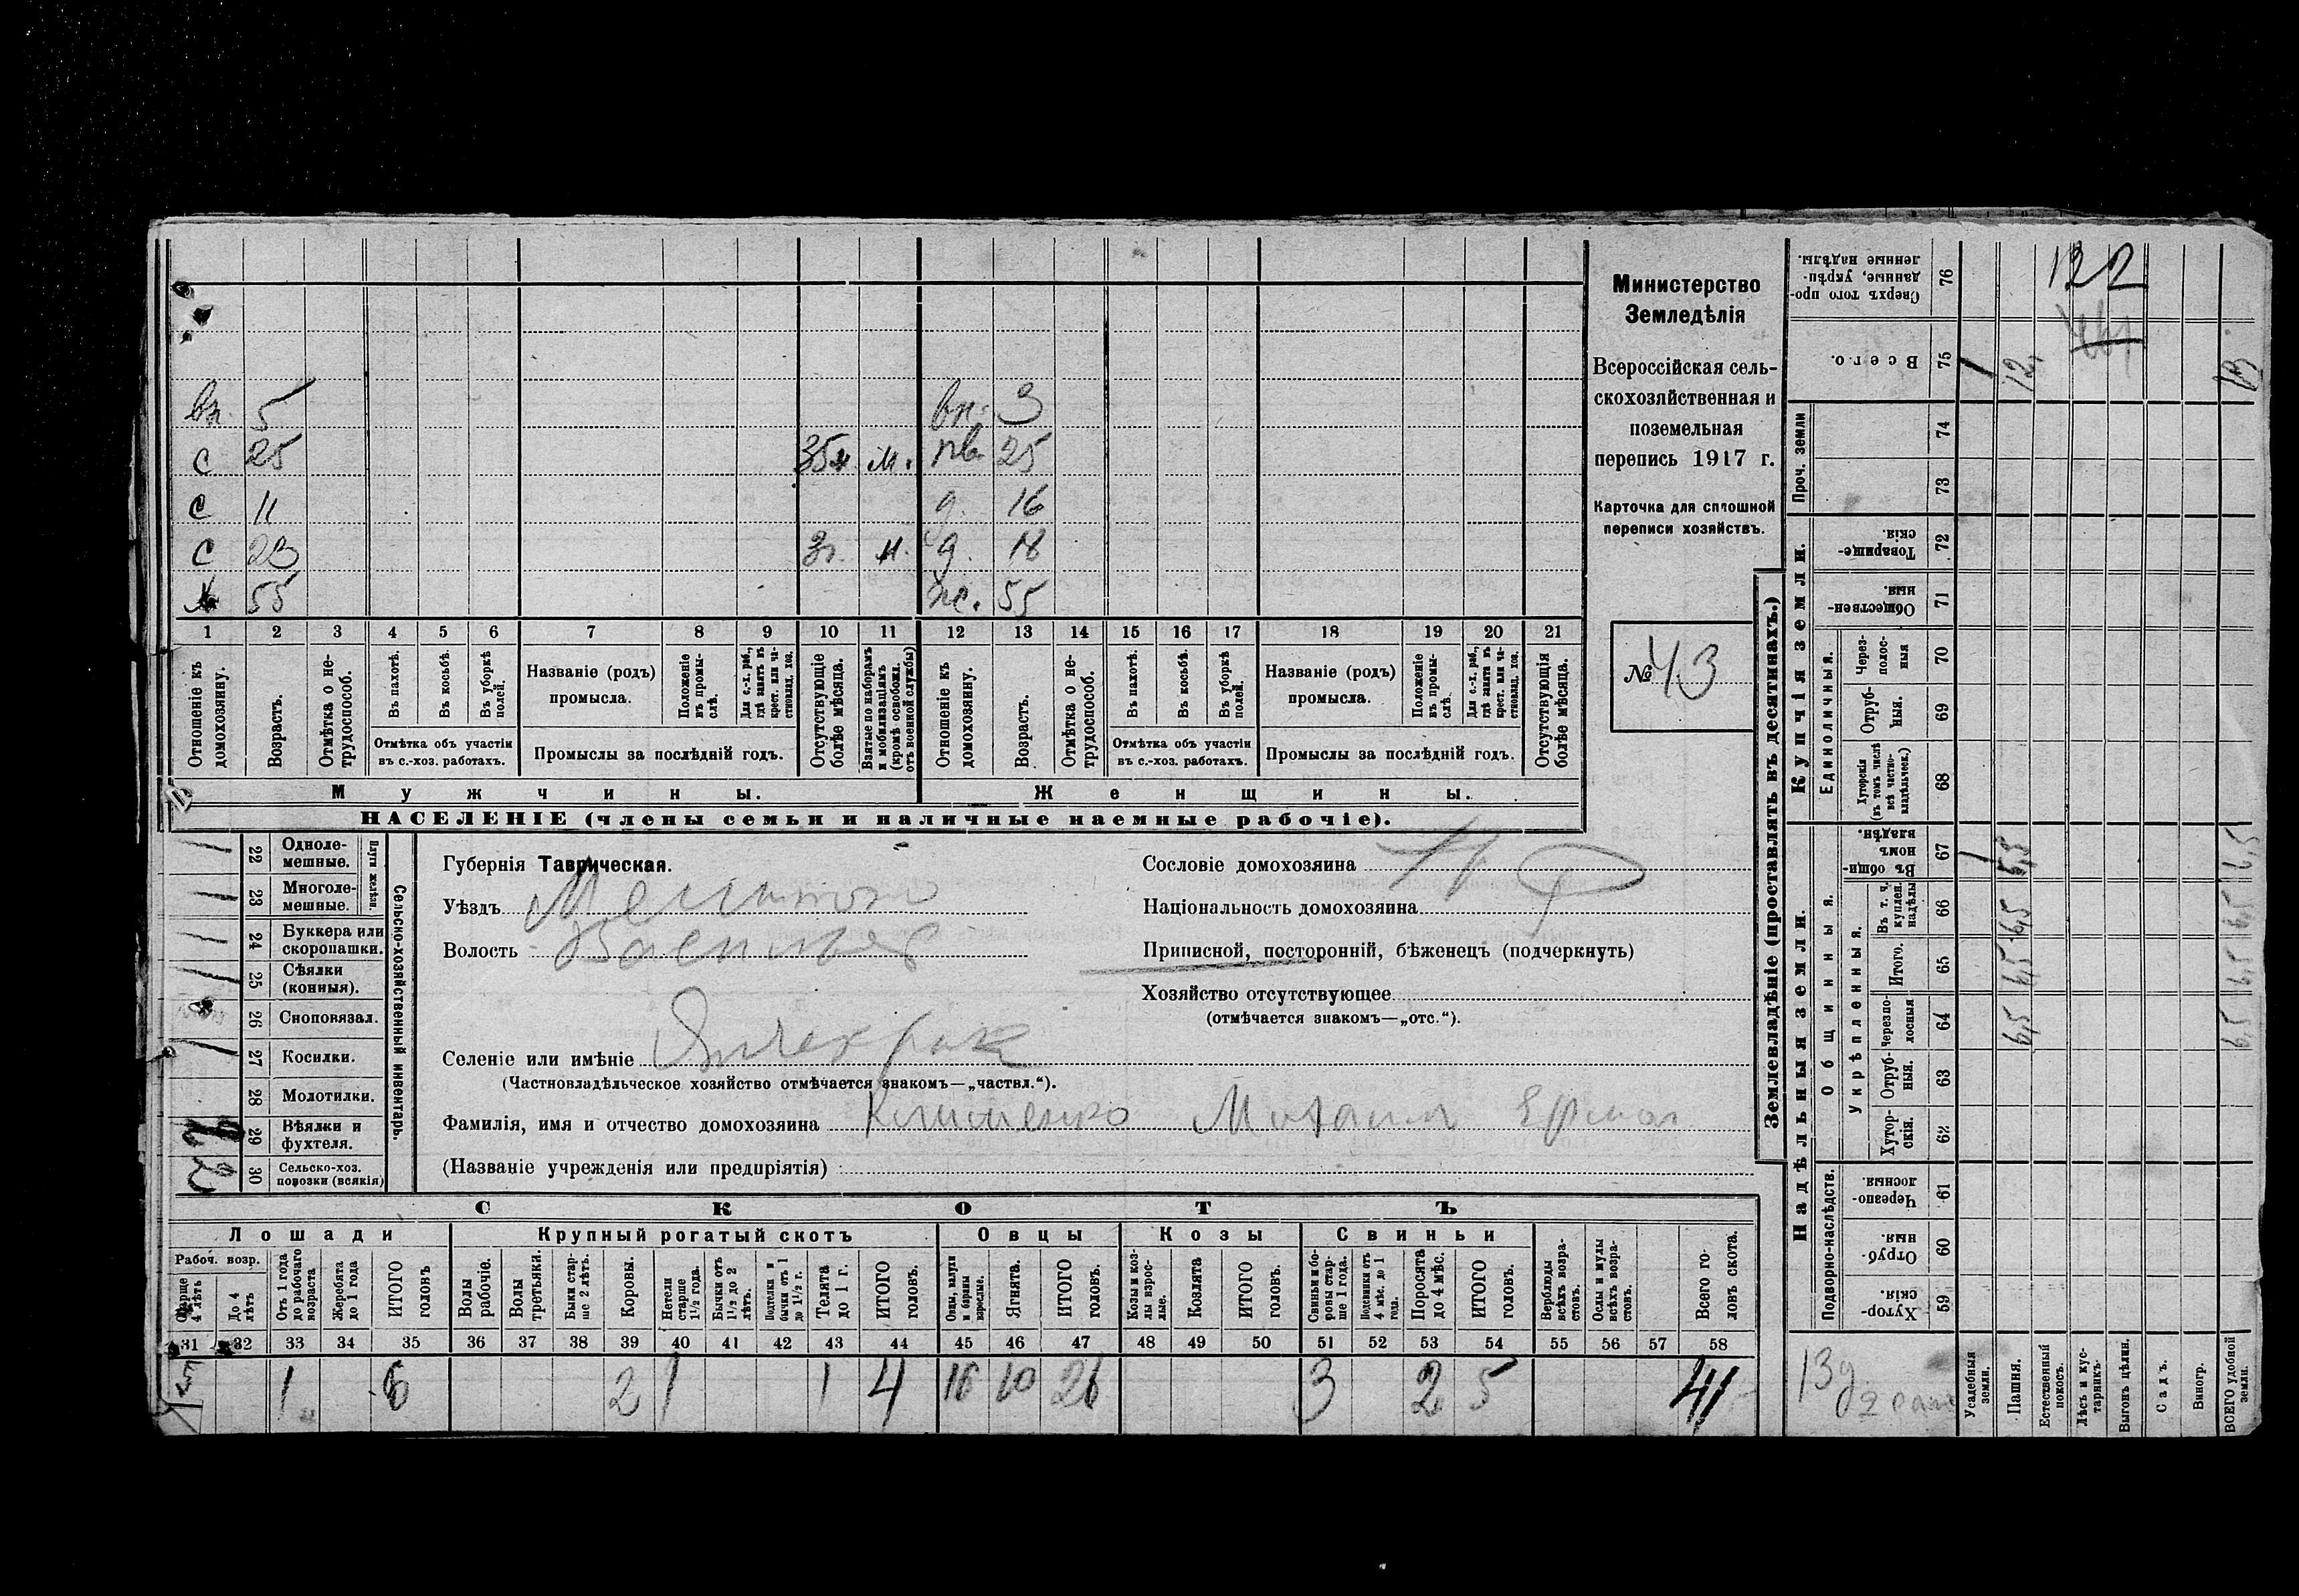 вн. 5 вн. 3
с 25 35 м. нев. 25
с 11 д. 16
с 23 3г. м. д. 18
х 55 же. 55
1 2 3 4 5 6 7 8 9 10 11 12 13 14 15 16 17 18 19 20 21
Отношеніе къ домохозяину.
Возрастъ.
Отмѣтка о не-трудоспособ.
Въ пахотѣ.
Въ косьбѣ.
Въ уборкѣ полей.
Отмѣтка объ участіи
въ с.-хоз. работахъ.
Названіе (родъ)
промысла.
Положеніе въ промы-слѣ.
Для с.-х. раб., гдѣ занятъ въ крест. или ча-стновлад. хоз.
Промыслы за послѣдній годъ.
Отсутствующіе болѣе мѣсяца.
Взятые по наборамъ и мобилизаціямъ (кромѣ освобожд. отъ военной службы)
Отношеніе къ домохозяину.
Возрастъ.
Отмѣтка о не-трудоспособ.
Въ пахотѣ.
Въ косьбѣ.
Въ уборкѣ полей.
Отмѣтка объ участіи
въ с.-хоз. работахъ.
Названіе (родъ)
промысла.
Положеніе въ промы-слѣ
Для с.-х. раб., гдѣ занятъ въ крест. или ча-стновлад. хоз.
Промыслы за послѣдній годъ.
Отсутствующія болѣе мѣсяца.
Мужчины. Женщины.
НАСЕЛЕНІЕ (члены семьи и наличные наемные рабочіе).
Министерство
Земледѣлія
Всероссійская сель-
скохозяйственная и
поземельная
перепись 1917 г.
Карточка для сплошной
переписи хозяйствъ.
№ 43
Сельско-хозяйственный инвентарь.
Плуги желѣзн.
22 Одноле-мешные. 1
23 Многоле-мешные. 1
24 Буккера или скоропашки. 1
25 Сѣялки (конныя). 1
26 Сноповязал.
27 Косилки. 1
28 Молотилки.
29 Вѣялки и фухтеля.
30 Сельско-хоз. повозки (всякія) 2
Губернія Таврическая.
Уѣздъ Мелитопо
Волость Васильев
Селеніе или имѣніе Янчекрак
(Частновладѣльческое хозяйство отмѣчается знакомъ—„частвл.“).
Фамилія, имя и отчество домохозяина Клименко Михаил Ермол
(Названіе учрежденія или предпріятія)
Сословіе домохозяина
Національность домохозяина
Приписной, посторонній, бѣженецъ (подчеркнуть)
Хозяйство отсутствующее
(отмѣчается знакомъ—„отс.“).
СКОТЪ
Лошади Крупный рогатый скотъ Овцы Козы Свиньи
Рабоч. возр.
Старше 4 лѣтъ
До 4 лѣтъ
Отъ 1 года до рабочаго возраста
Жеребята до 1 года
ИТОГО головъ
Волы рабочіе.
Волы третьяки.
Быки стар-ше 2 лѣтъ.
Коровы.
Нетели старше 1½ года.
Бычки отъ 1½ до 2 лѣтъ.
Подтелки и бычки отъ 1 до 1½ г.
Телята до 1 г.
ИТОГО головъ.
Овцы, валухи и бараны взрослые.
Ягнята.
ИТОГО головъ.
Козы и коз-лы взрос-лые.
Козлята
ИТОГО головъ.
Свиньи и бо-ровы стар-ше 1 года.
Подсвинки отъ 4 мѣс. до 1 года.
Поросята до 4 мѣс.
ИТОГО головъ.
Верблюды всѣхъ возра-стовъ.
Ослы и мулы всѣхъ возра-стовъ.
Всего го-ловъ скота.
31 32 33 34 35 36 37 38 39 40 41 42 43 44 45 46 47 48 49 50 51 52 53 54 55 56 57 58
5 1 6 2 1 1 4 16 10 26 3 2 5 41
Землевладѣніе (проставлять въ десятинахъ.)
Надѣльныя земли. Купчія земли. Проч. земли
Подворно-наслѣдств.
Общинныя.
Укрѣпленныя.
Единоличныя.
Сверхъ того про-данные, укрѣп-ленные надѣлы. 76
Всего. 75 1 12 13
74
73
Товарище-скія. 72
Обществен-ныя. 71
Через-полос-ныя 70
Отруб-ныя. 69
Хуторскія (въ томъ числѣ всѣ частно-владѣльческ.) 68
Въ общин-номъ владѣн. 67 1 5,5 6,5
Въ т. ч. куплен. надѣлы 66 6,5 6,5
Итого. 65 6,5 6,5
Черезпо-лосныя 64 6,5 6,5
Отруб-ныя. 63
Хутор-скія. 62
Черезпо-лосныя. 61
Отруб-ныя. 60
Хутор-скія. 59
122
13д
Усадебныя земли.
Пашня.
Естественный покосъ.
Лѣсъ и кус-тарникъ.
Выгонъ цѣлин.
Садъ.
Виногр.
ВСЕГО удобной земли.